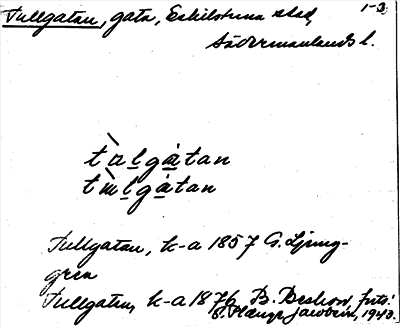 Tullgatan, gata, Eskilstuna stad, 1-2
Södermanlands l.
tàlgátan
tùlgátan
Tullgatan, k-a 1857 G. Ljung-
gren
Tullgatan, k-a 1876 B. Beskow, foto.
Jacobson, 1943.